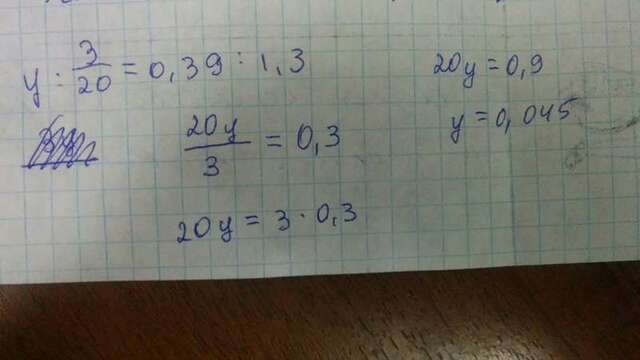 y : 3/20 = 0,39 : 1,3
20y/3 = 0,3
20y = 3 · 0,3
20y = 0,9
y = 0,045